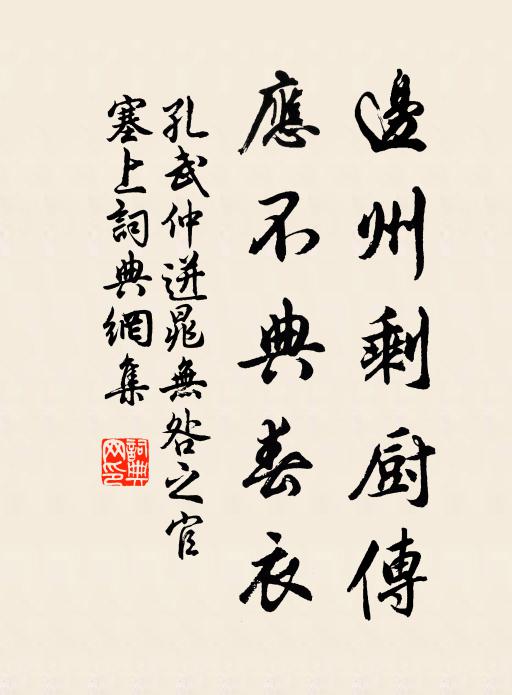 邊州剩厨傳
應不典春衣
孔武仲迸晁無咎之官
塞上詞典網集
詞典網印